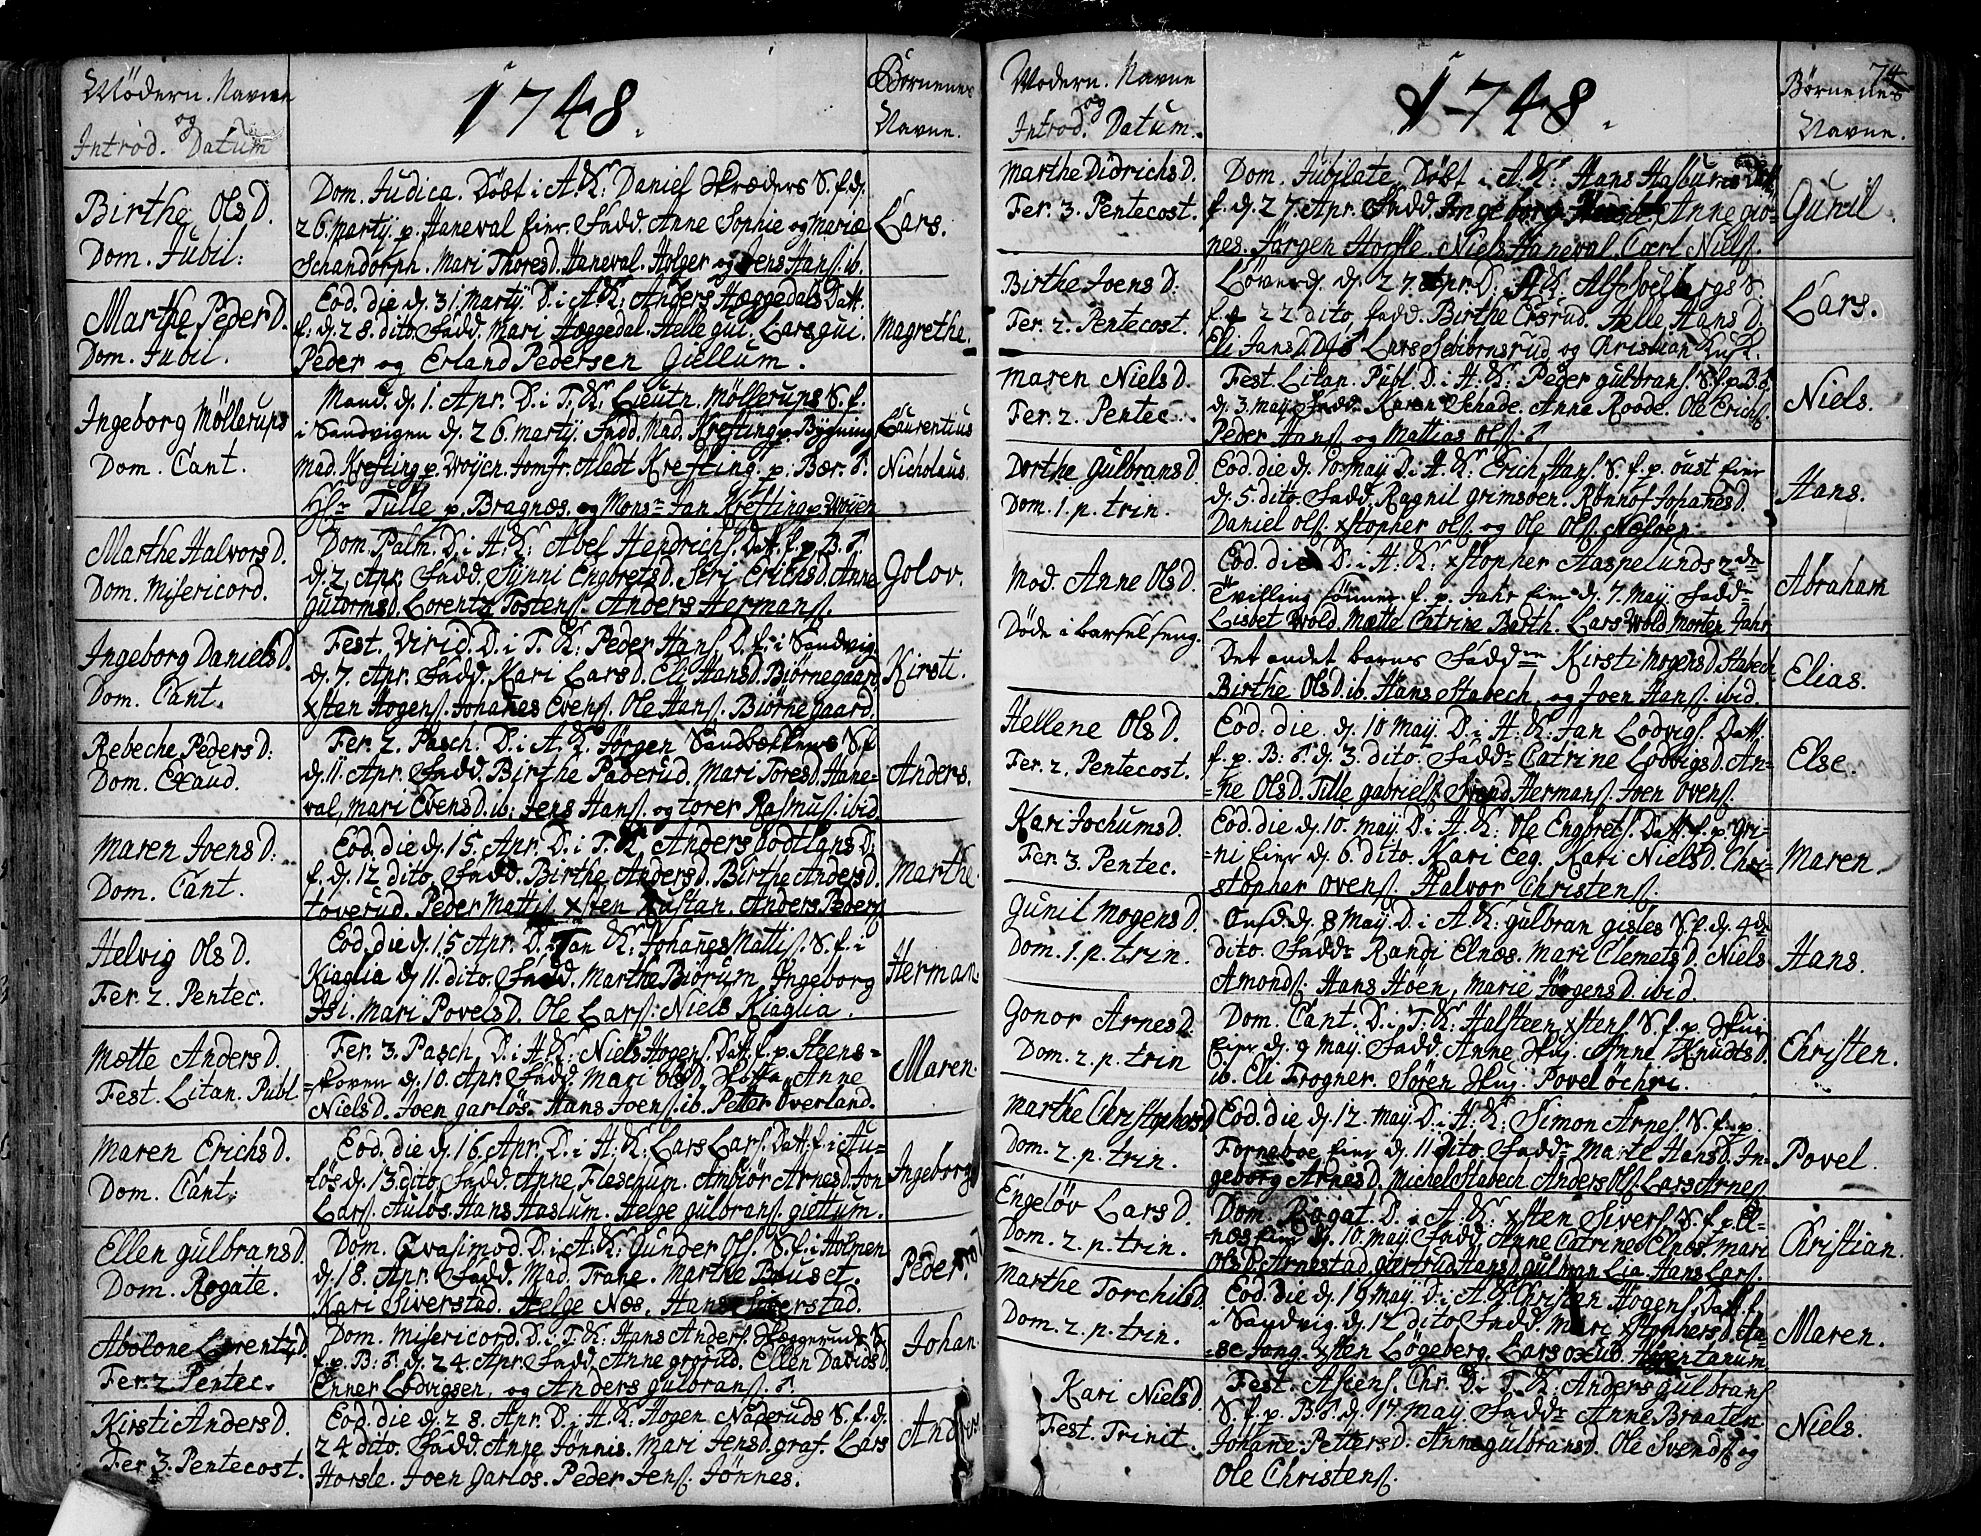 Mödern. Navne
og
Introd. Datum
1748.
Börnenes
Navne.
Birthe Ols D.
Dom. Jubil:
Dom. Judica. Döbt i A.K: Daniel Skræders S. f. d.
26 martij p. Haneval Eier. Fadd. Anne Sophie og Mariæ
Schandorph. Mari Thores D. Haneval. Holger og Jens Hans. ib.
Lars.
Marthe Peder D.
Dom. Jubil.
Eod. die d. 31 Martij D. i A.K: Anders Hæggedals Datt.
f. d. 28. dito. Fadd. Mari Hæggedal. Helle gui. Lars gui.
Peder og Erland Pedersen Giellum.
Magrethe.
Ingeborg Möllerups
Dom. Cant.
Mand. d. 1. Apr. D. i T.K: Lieutn. Möllerups S. f.
i Sandvigen d. 26 martij. Fadd. Mad. Krefting p. Bygning
Mad. Krefting p. Woyen. Jomfr. Aledt Krefting. p. Bær.
Hr Tulle p. Bragnæs. og Monsr Jan Krefting p. Woyen
Laurentius
Nicholaus.
Marthe Halvors D.
Dom. Misericord.
Dom. Palm. D. i A.K: Abel Hendrichs. Datt. f. p. B.
d. 2 Apr. Fadd. Synni Engbrets D. Siri Erichs D. Anne
Gutorms D. Lorentz Tostens. Anders Hermans.
Golov.
Ingeborg Daniels D.
Dom. Cant.
Fest. Virid. D. i T.K: Peder Hans. D. f. i Sandvig
d. 7. Apr. Fadd. Kari Lars D. Eli Hans D. Biörnegaard
Xsten Hogens. Johannes Evens. Ole Hans. Biörnegaard.
Kirsti.
Rebeche Peders D:
Dom. Exaud.
Fer. 2. Pasch. D. i A.K: Jörgen Sandbækkens S. f.
d. 11. Apr. Fadd. Birthe Paderud. Mari Tores D. Hane=
val, Mari Evens D. ib: Jens Hans. og Torer Rasmus. ibid
Anders.
Maren Joens D:
Dom. Cant.
Eod. die d. 15. Apr. D. i T.K: Anders Godtlans D:
f. d. 12 dito. Fadd. Birthe Anders D. Birthe Anders D.
Toverud. Peder Mattis. Xsten Kustan. Anders Peders.
Marthe.
Helvig Ols D.
Fer. 2. Pentec.
Eod. die d. 15 Apr. D. i Tan. K: Johannes Mattis. S. f. i
Kiaglia d. 11. dito. Fadd. Marthe Biörum, Ingeborg
Isi. Mari Povels D. Ole Lars: Niels Kiaglia.
Herman.
Mætte Anders D.
Fest. Litan. Publ
Fer. 3. Pasch. D. i A.K: Niels Hogens. Datt. f. p. Steens=
=skoven d. 10. Apr. Fadd. Mari Ols D. Hotta. Anne
Niels D. Joen garlös. Hans Joens. ib. Petter Overland.
Maren.
Maren Erichs D.
Dom. Cant.
Eod. die d. 16 Apr. D. i A.K: Lars Lars. Datt. f. i Au=
lös d. 13 dito. Fadd. Anne Flaschum. Ambiör Arnes D. Jon
Lars. Aulös. Hans Haslum. Helge gulbrans. giettum.
Ingeborg
Ellen Gulbrans D.
Dom. Rogate.
Dom. Qvasimod. D. i A.K: Gunder Ols. S. f. i Holmen
d. 18. Apr. Fadd. Mad. Trane. Marthe Bouset.
Kari Siverstad. Helge Næs. Hans Siverstad.
Peder.
Abolone Lorentz D.
Fer. 2 Pentec.
Dom. Misericord. D. i T.K: Hans Anders. Hæggeruds S.
f. p. B: d. 24. Apr. Fadd. Anne grorud. Ellen Davids D.
Enner Lodvigsen, og Anders gulbrans.
Johan.
Kirsti Anders D.
Fer. 3. Pentecost.
Eod. die d. 28. Apr. D. i A.K: Hogen Naderuds S. f. d.
24 dito. Fadd. Anne Jönnis. Mari Jens D. graf. Lars
Horsle. Joen Garlös. Peder Jens. Jönnes.
Andres.
74
Modern. Navne
og
Introd. Datum.
1748.
Börnenes
Navne.
Marthe Didrichs D.
Fer. 3. Pentecost.
Dom. Jubilate Döbt i A.K: Hans Hasbun Datt.
f. d. 27. Apr. Fadd. Ingeborg. Anne giö=
nes. Jörgen Horsle. Niels Haneval. Carl Niels.
Gunil.
Birthe Joens D:
Fer. 2. Pentecost.
Löverd. d. 27 Apr. D: A.K: Alf Solbergs S.
f. d. 22 dito. Fadd. Birthe Ersrud. Helle Hans D.
Eli Jans D. Lars Skiornsrud og Christian Kuk.
Lars.
Maren Niels D.
Fer. 2. Pentec.
Fest. Litan. Publ. D. i A.K: Peder Gulbrans. S. f. p. B.
d. 3. May. Fadd. Karen Schade. Anne Roode. Ole Erichs.
Peder Hans. og Mattias Ols.
Niels.
Dorthe Gulbrans D.
Dom. 1. p. trin.
Eod. die d. 10. May. D. i A.K: Erich Hans. S. f. p. oust Eier
d. 5. dito. Fadd. Ragnil Grimsöen. Rönnof Johannes D.
Daniel Ols. Xstopher Ols. og Ole Ols. Næsöen.
Hans.
Mod. Anne Ols D.
Döde i barsel seng.
Eod. die D. i A.K: Xstopher Haspelunds 2de
Tvilling sönner f. p. Jahr Eier d. 7. May. Faddr
Lisbet Wold. Mætte Catrine Barth. Lars Wold. Morten Jahr.
Abraham
Det andet barns Fadderne Kirsti Mogens D. Stabech
Birthe Ols D. ib. Hans Stabech. og Joen Hans. ibid.
Elias.
Hellene Ols D.
Fer. 2. Pentecost.
Eod. die. d. 10 May. D. i A.K: Jan Lodvigs. Datt.
f. p. B: d. 3. dito. Faddr Catrine Lodvigs D. An=
=ne Ols D. Tille gabriels. Svend Hermans. Joen Ovens.
Else.
Kari Jochums D.
Fer. 3. Pentec.
Eod. die d. 10. May. D. i A.K: Ole Engbrets. Datt. f. p. Gri=
=ni Eier d. 6. dito. Kari Eeg. Kari Niels D. Chri=
stopher Ovens. Halvor Christens.
Maren
Gunil Mogens D.
Dom. 1. p. trin.
Onsd. d. 8 May. D. i A.K: Gulbran Gisles S. f. d. 4de
dito. Faddr Randi Elnæs. Mari Clemets D. Niels
Amonds. Hans Höen, Marie Jörgens D. ibid.
Hans.
Gonor Arnes D
Dom. 2. p. trin
Dom. Cant. D. i T.K: Halsteen Xstens. S. f. p. Hui
Eier d. 9 May. Fadd. Anne Huj. Anne Knuds D.
ib. Eli Frogner. Sören Huj. Povel Öchri.
Christen.
Marthe Christophers D
Dom. 2. p. trin.
Eod. die d. 12. May. D. i A.K: Simon Arnes. S. f. p.
Forneboe Eier d. 11 dito. Faddr Marte Hans D. In=
geborg Arnes D. Michel Stabech. Anders Ols. Lars Arnes.
Povel.
Engelöv Lars D.
Dom. 2. p. trin.
Dom. Rogat. D. i A.K: Xsten Sivers. S. f. p. El=
=nes Eier d. 10. May. Fadd. Anne Catrine Elnes. Mari
Ols D. Arnestad. giertrud Hans D. gulman Lia. Hans Lars.
Christian.
Marthe Torchils D.
Dom. 2. p. trin.
Eod. die d. 19 May. D. i A.K: Christen Hogens. Datt. f.
i Sandvig. d. 12 dito. Fadd. Mari Xstophers D. Ha=
=se Jang. Xsten Lögeberg. Lars
Maren.
Kari Niels D.
Fest. Trinit.
Fest. Ascens. Chr. D. i T.K: Anders Gulbrans
S. f. p. B. d. 14. May. Faddr Anne Braaten.
Johane Petters D. Anne gulbrans D. Ole Svends. og
Ole Christens.
Niels.